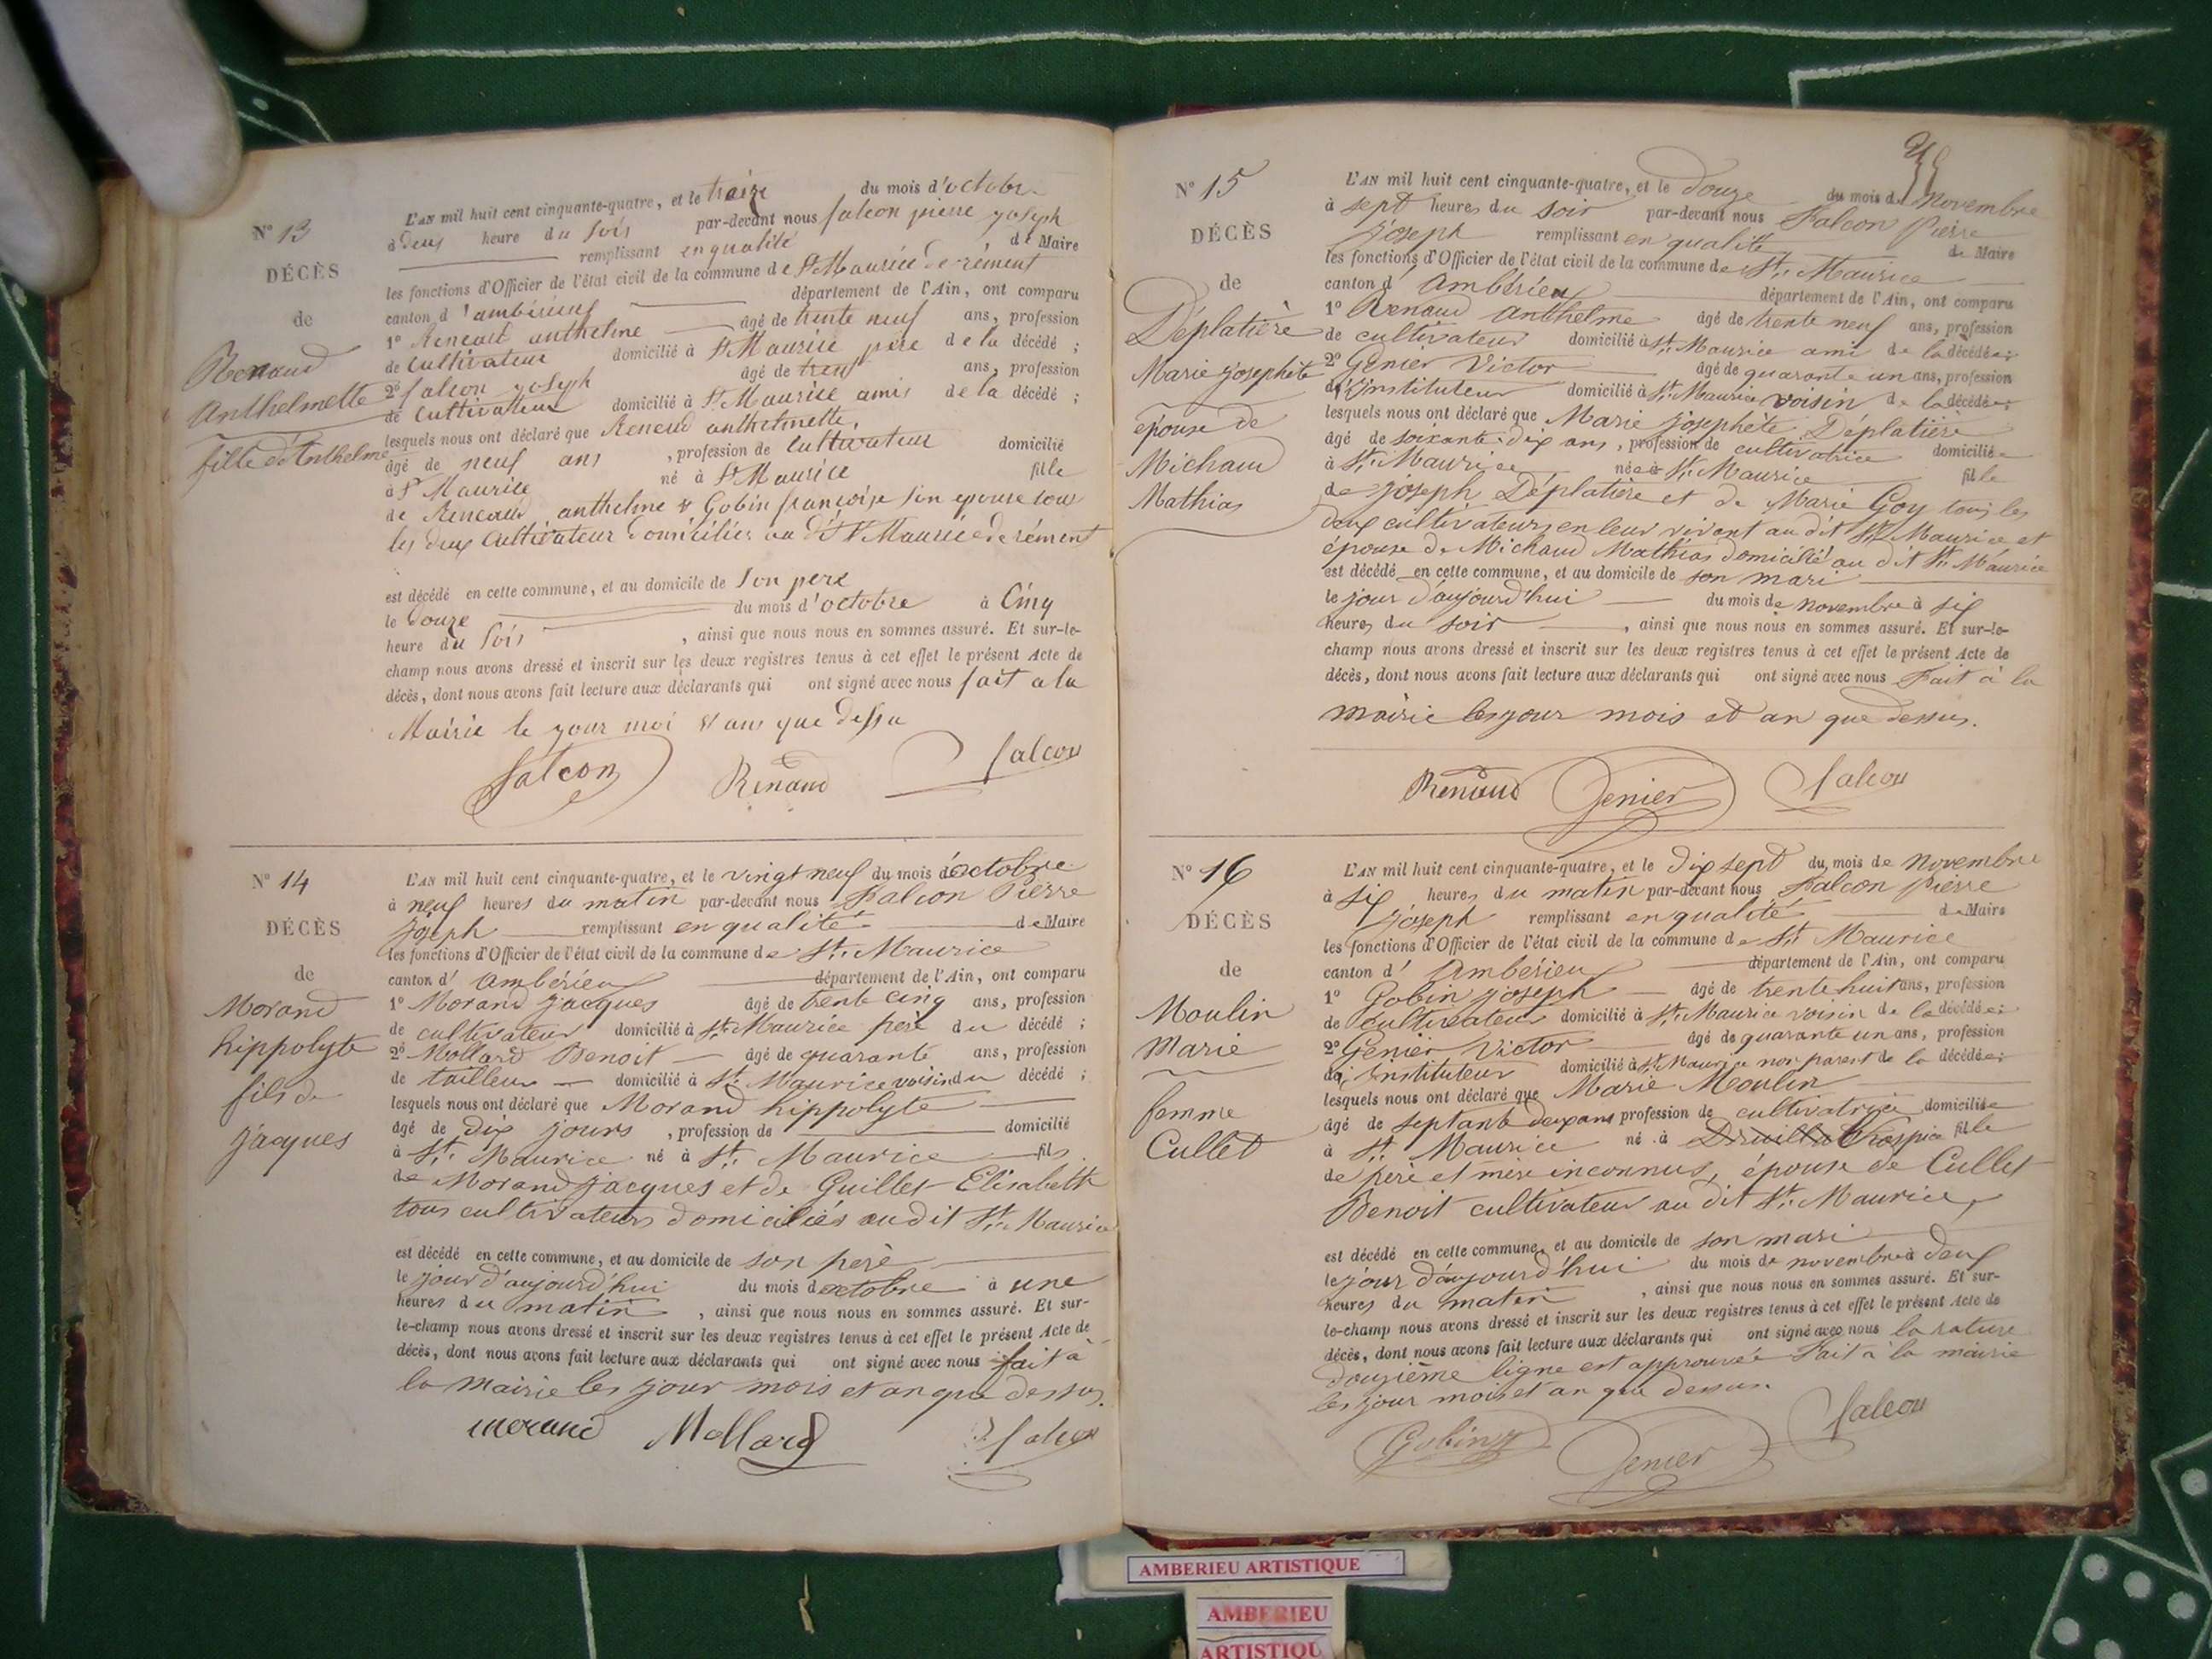 N° 13
DÉCÈS
de
Renaud
Anthelmette
fille d'Anthelme
L'AN mil huit cent cinquante-quatre, et le treize du mois d'octobre
à deux heure du soir par-devant nous falcon pierre joseph
remplissant en qualité de Maire
les fonctions d'Officier de l'état civil de la commune de St Maurice de rément
canton d'ambérieux département de l'Ain, ont comparu
1° Renaud anthelme âgé de trente neuf ans, profession
de Cultivateur domicilié à St Maurice père de la décédé ;
2° falcon joseph âgé de ans, profession
de Cultivateur domicilié à St Maurice amis de la décédé ;
lesquels nous ont déclaré que Renaud anthelmette,
âgé de neuf ans , profession de Cultivateur domicilié
à St Maurice né à St Maurice fille
de Renaud anthelme & Gobin françoise son epouse tous
les deux Cultivateur domiciliés au dit St Maurice de rément
est décédé en cette commune, et au domicile de son pere
le douze du mois d'octobre à Cinq
heure du soir , ainsi que nous nous en sommes assuré. Et sur-le-
champ nous avons dressé et inscrit sur les deux registres tenus à cet effet le présent Acte de
décès, dont nous avons fait lecture aux déclarants qui ont signé avec nous fait a la
Mairie le jour moi & an que dessu
falcon Renaud falcon
N° 14
DÉCÈS
de
Morand
hippolyte
fils de
jacques
L'AN mil huit cent cinquante-quatre, et le vingt neuf du mois d'octobre
à neuf heures du matin par-devant nous Falcon Pierre
joseph remplissant en qualité de Maire
les fonctions d'Officier de l'état civil de la commune de St. Maurice
canton d' ambérieu département de l'Ain, ont comparu
1° Morand jacques âgé de trente cinq ans, profession
de cultivateur domicilié à St. Maurice père du décédé ;
2° Mollard Benoit âgé de quarante ans, profession
de tailleur domicilié à St. Maurice voisin du décédé ;
lesquels nous ont déclaré que Morand hippolyte
âgé de dix jours , profession de domicilié
à St. Maurice né à St. Maurice fils
de Morand jacques et de Guillet Elisabeth
tous cultivateurs domiciliés au dit St. Maurice
est décédé en cette commune, et au domicile de son père
le jour d'aujourd'hui du mois d'octobre à une
heures du matin , ainsi que nous nous en sommes assuré. Et sur-
le-champ nous avons dressé et inscrit sur les deux registres tenus à cet effet le présent Acte de
décès, dont nous avons fait lecture aux déclarants qui ont signé avec nous fait à
la mairie les jour mois et an que dessus.
morand Mollard falcon
N° 15
DÉCÈS
de
Déplatière
Marie josephete
épouse de
Michaud
Mathias
L'AN mil huit cent cinquante-quatre, et le douze du mois de novembre
à sept heures du soir par-devant nous Falcon Pierre
joseph remplissant en qualité de Maire
les fonctions d'Officier de l'état civil de la commune de St. Maurice
canton d' Ambérieu département de l'Ain, ont comparu
1° Renaud Anthelme âgé de trente neuf ans, profession
de cultivateur domicilié à St. Maurice ami de la décédée ;
2° Genier Victor âgé de quarante un ans, profession
d'instituteur domicilié à St. Maurice voisin de la décédée ;
lesquels nous ont déclaré que Marie josephete Déplatière
âgé de soixante-dix ans, profession de cultivatrice domiciliée
à St. Maurice née à St. Maurice fille
de joseph Déplatière et de Marie Goy tous les
deux cultivateurs en leur vivant au dit St. Maurice et
épouse de Michaud Mathias domicilié au dit St. Maurice
est décédé en cette commune, et au domicile de son mari
le jour d'aujourd'hui du mois de novembre à six
heures du soir , ainsi que nous nous en sommes assuré. Et sur-le-
champ nous avons dressé et inscrit sur les deux registres tenus à cet effet le présent Acte de
décès, dont nous avons fait lecture aux déclarants qui ont signé avec nous Fait à la
mairie les jour mois et an que dessus.
Renaud Genier falcon
N° 16
DÉCÈS
de
Moulin
Marie
femme
Cullet
L'AN mil huit cent cinquante-quatre, et le dix sept du mois de novembre
à six heures du matin par-devant nous Falcon Pierre
joseph remplissant en qualité de Maire
les fonctions d'Officier de l'état civil de la commune de St. Maurice
canton d' Ambérieu département de l'Ain, ont comparu
1° Gobin joseph âgé de trente huit ans, profession
de cultivateur domicilié à St. Maurice voisin de la décédée ;
2° Genier Victor âgé de quarante un ans, profession
d'instituteur domicilié à St. Maurice non parent de la décédée ;
lesquels nous ont déclaré que Marie Moulin
âgé de septante deux ans profession de cultivatrice domiciliée
à St. Maurice né à hospice fille
de père et mère inconnus, épouse de Cullet
Benoit cultivateur au dit St. Maurice,
est décédé en cette commune, et au domicile de son mari
le jour d'aujourd'hui du mois de novembre à deux
heures du matin , ainsi que nous nous en sommes assuré. Et sur-
le-champ nous avons dressé et inscrit sur les deux registres tenus à cet effet le présent Acte de
décès, dont nous avons fait lecture aux déclarants qui ont signé avec nous la rature
douzième ligne est approuvée Fait à la mairie
les jour mois et an que dessus.
Gobin Genier falcon
AMBERIEU ARTISTIQUE
AMBERIEU
ARTISTIQU